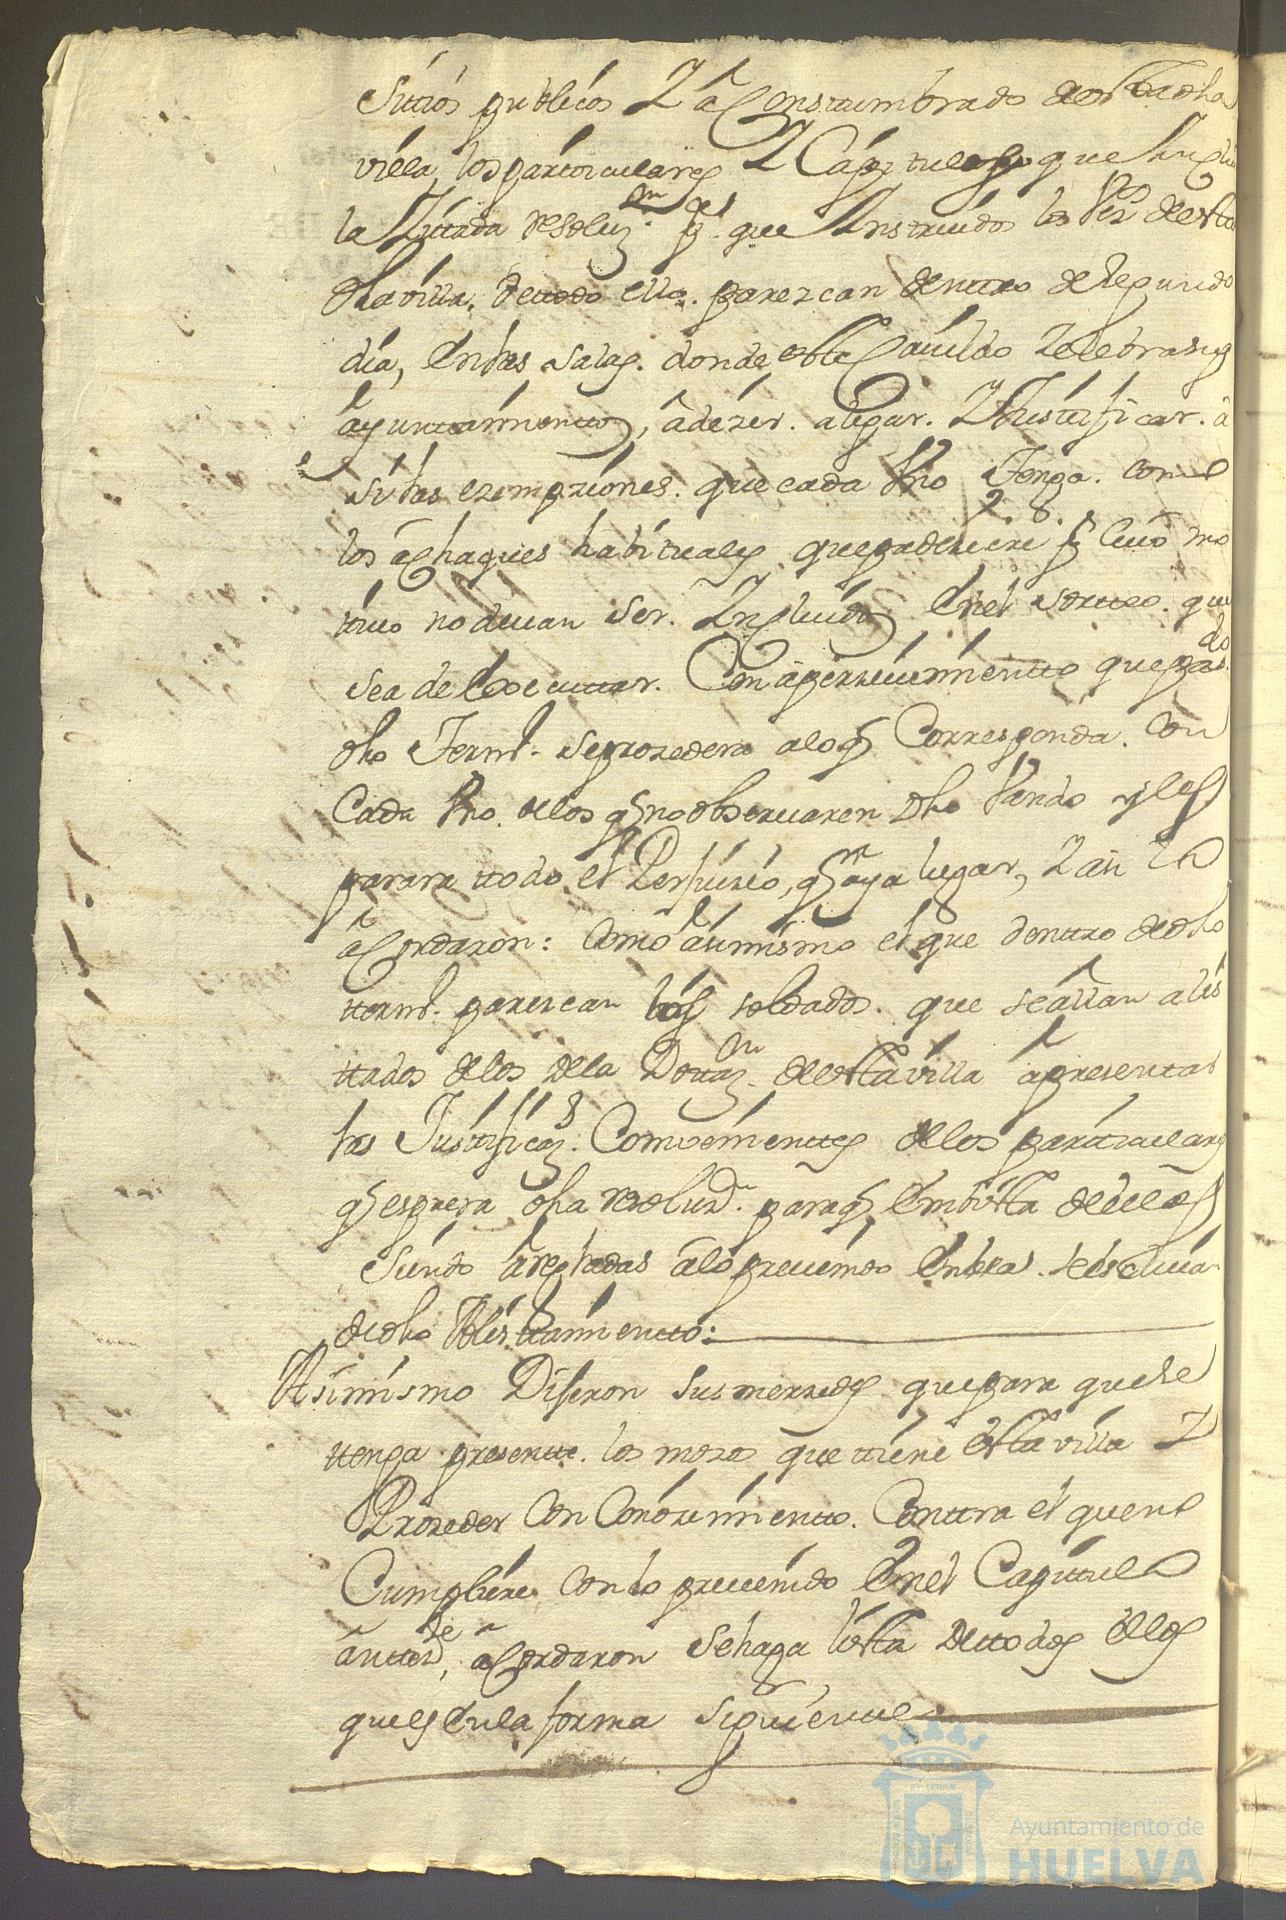 Sittios publicos Y acostumbrados de esta dha
villa, los particulares Y Capitulos que Inclui
la Zitada resoluz.on p.a que Instruidos los Vez.os de esta
dha villa. de todo ello. parezcan dentro de segundo
dia, En las Salas. donde este Cavildo Zelebra sus
ayuntamientos, a dezir. alegar. Y Justificar. a
si las exempziones. que cada Vno Tenga. como
los achaques habituales que padeziere p.r cuio mo
tivo no devan Ser. Yncluidos En el sorteo. que
sea de Executar. Con aperzevimiento que pasado
dho Term.o Se prozedera a lo q Corresponda. Con
Cada Vno. de los q no observaren dho Vando y les
parara todo el Perjuizio, q aya lugar, Y asi lo
acordaron: Como asimismo el que dentro de dho
term.o parezcan los soldados. que se allan alis
tados de los de la Dotaz.on de esta villa a presentar
las Justificaz.s Combenientes de los particulares
q espresa dha resoluz.n para q En vista de ellas
Siendo arregladas a lo prevenido En ella. se escluian
de dho Alistamiento:
Asimismo Dijeron Sus merzedes que para que se
tenga presente. los mozos que tiene esta villa Y
Prozeder Con Conozimiento. Contra el que no
Cumpliere con lo prevenido En el Capitulo
antezed.te, acordaron Se haga lista de todos ellos
que es En la forma Siguiente
Ayuntamiento de
HUELVA